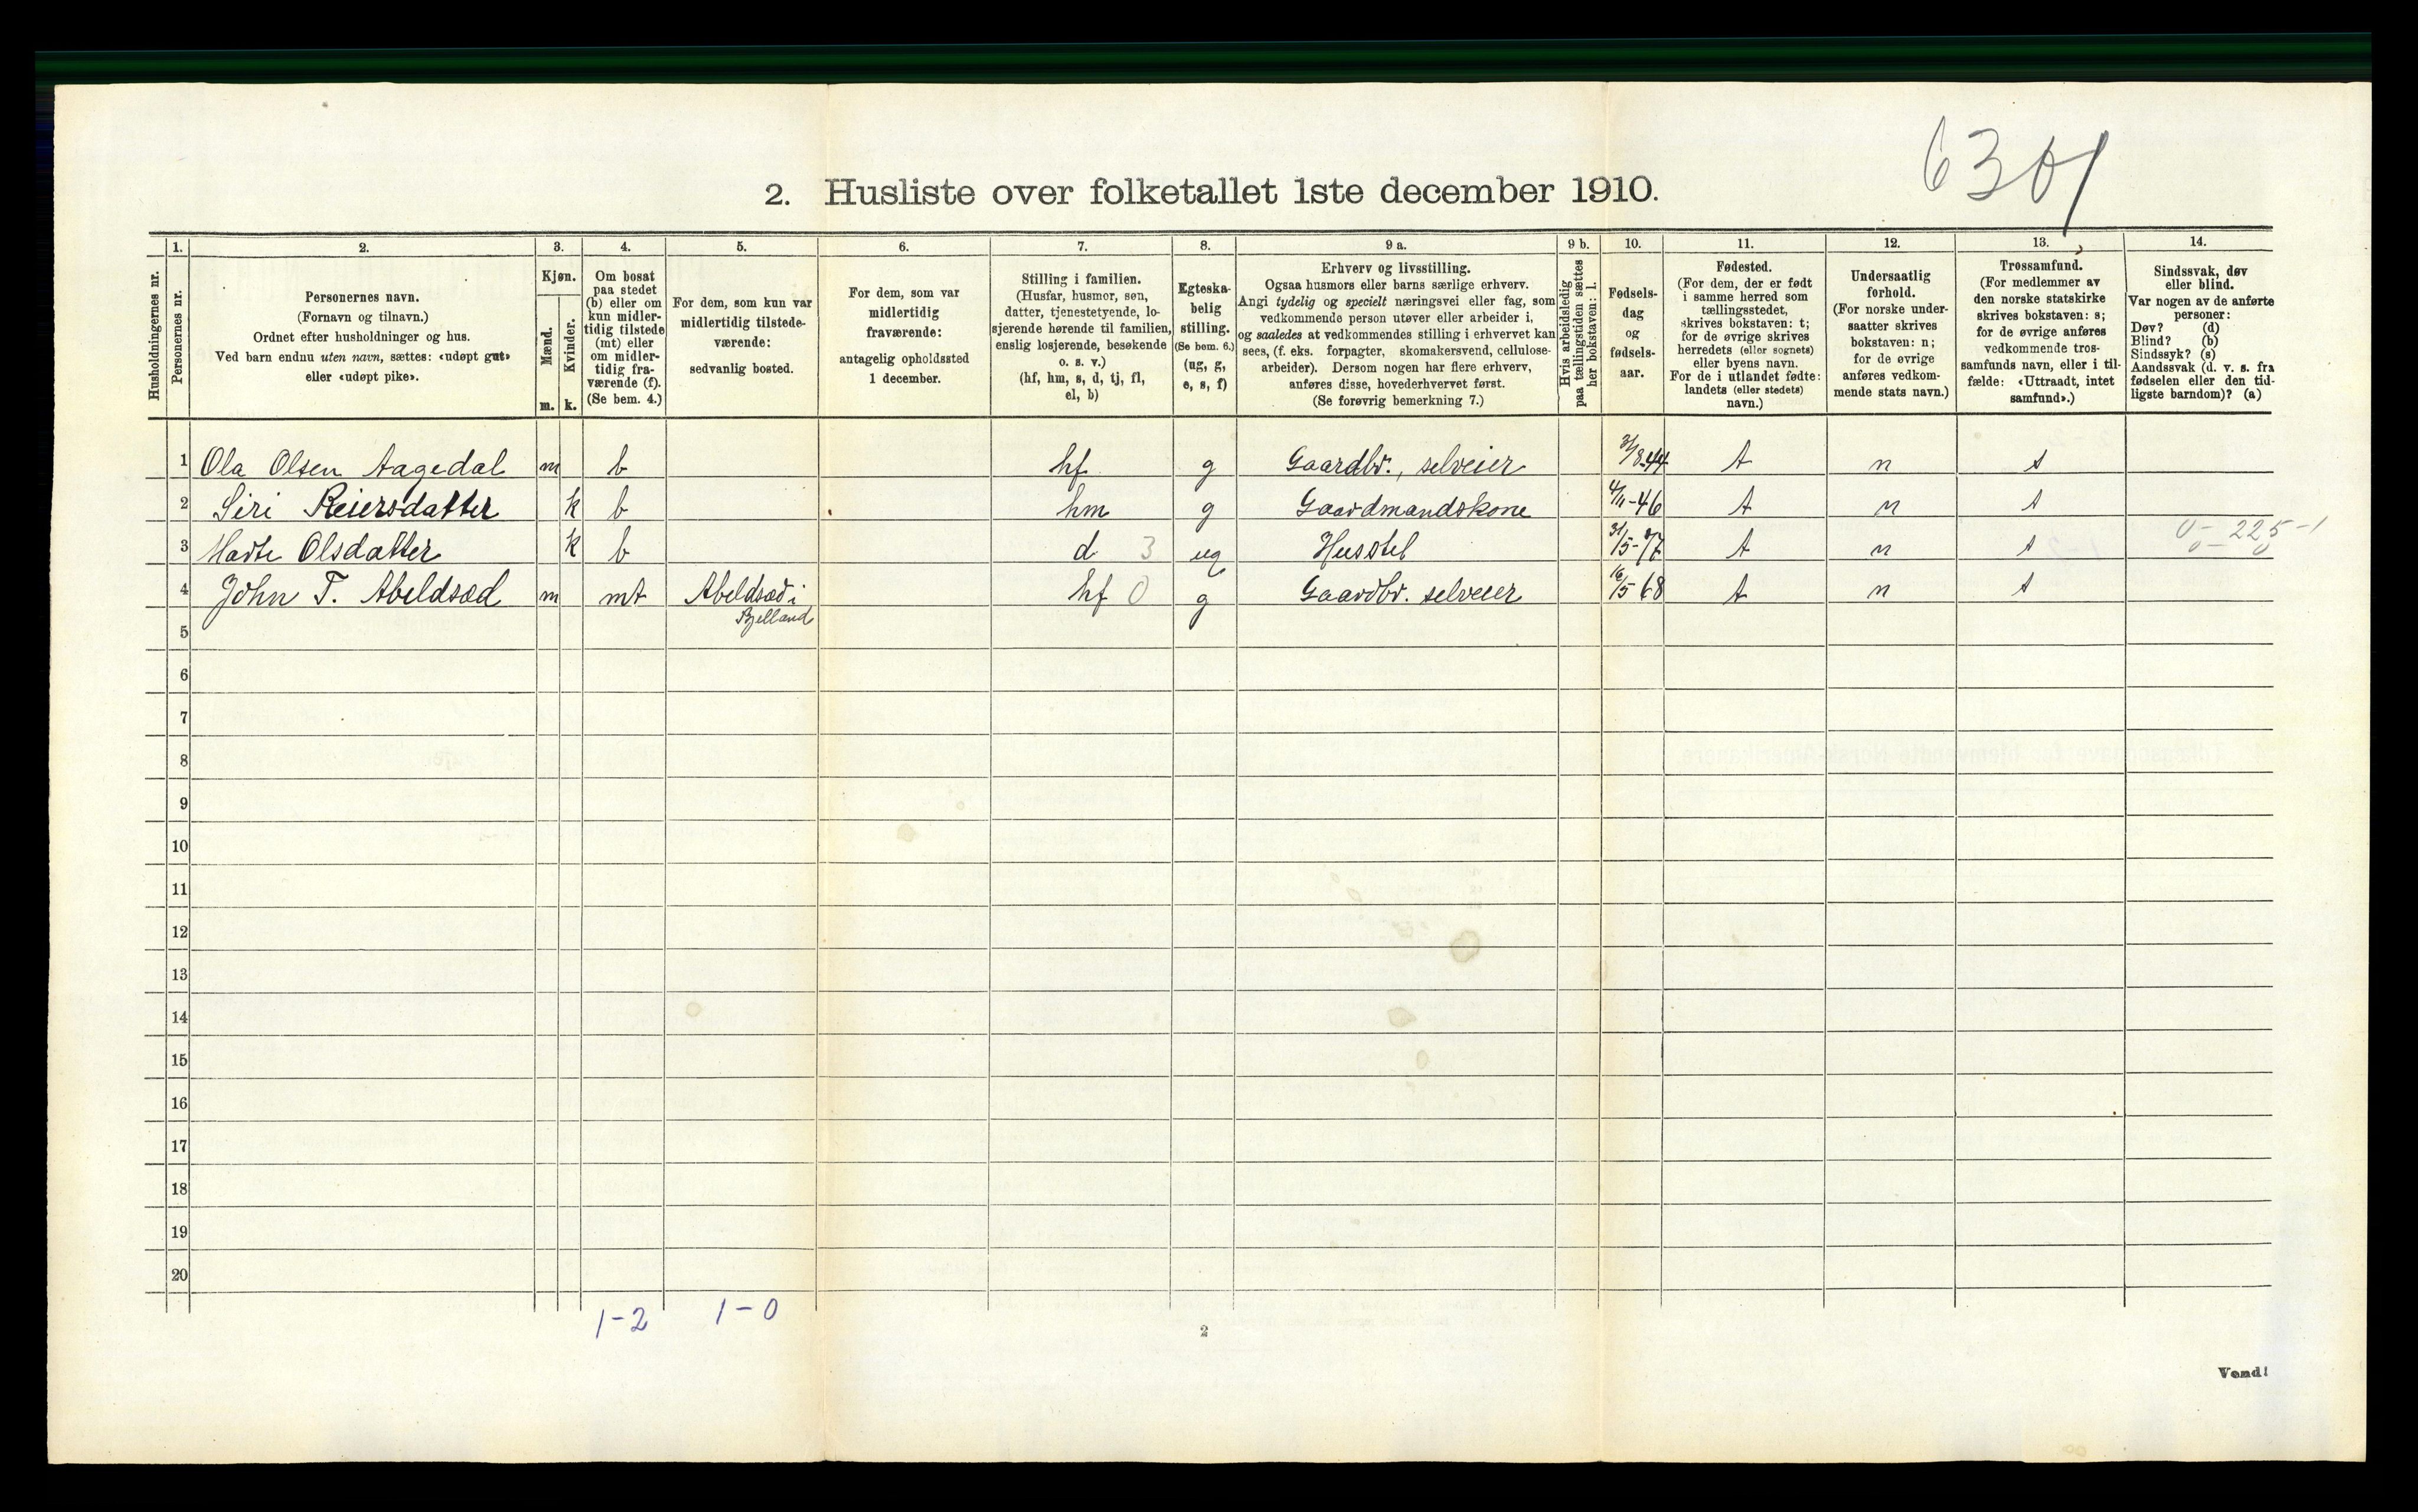 6301
2. Husliste over folketallet 1ste december 1910.
1. 2. 3. 4. 5. 6. 7. 8. 9 a. 9 b. 10. 11. 12. 13. 14.
Husholdningernes nr.
Personernes nr.
Personernes navn.
(Fornavn og tilnavn.)
Ordnet efter husholdninger og hus.
Ved barn endnu uten navn, sættes: «udøpt gut»
eller «udøpt pike».
Kjøn.
Mænd.
m.
Kvinder.
k.
Om bosat
paa stedet
(b) eller om
kun midler-
tidig tilstede
(mt) eller
om midler-
tidig fra-
værende (f).
(Se bem. 4.)
For dem, som kun var
midlertidig tilstede-
værende:
sedvanlig bosted.
For dem, som var
midlertidig
fraværende:
antagelig opholdssted
1 december.
Stilling i familien.
(Husfar, husmor, søn,
datter, tjenestetyende, lo-
sjerende hørende til familien,
enslig losjerende, besøkende
o. s. v.)
(hf, hm, s, d, tj, fl,
el, b)
Egteska-
belig
stilling.
(Se bem. 6.)
(ug, g,
e, s, f)
Erhverv og livsstilling.
Ogsaa husmors eller barns særlige erhverv.
Angi tydelig og specielt næringsvei eller fag, som
vedkommende person utøver eller arbeider i,
og saaledes at vedkommendes stilling i erhvervet kan
sees, (f. eks. forpagter, skomakersvend, cellulose-
arbeider). Dersom nogen har flere erhverv,
anføres disse, hovederhvervet først.
(Se forøvrig bemerkning 7.)
Hvis arbeidsledig
paa tællingstiden sættes
her bokstaven: l.
Fødsels-
dag
og
fødsels-
aar.
Fødested.
(For dem, der er født
i samme herred som
tællingsstedet,
skrives bokstaven: t;
for de øvrige skrives
herredets (eller sognets)
eller byens navn.
For de i utlandet fødte:
landets (eller stedets)
navn.)
Undersaatlig
forhold.
(For norske under-
saatter skrives
bokstaven: n;
for de øvrige
anføres vedkom-
mende stats navn.)
Trossamfund.
(For medlemmer av
den norske statskirke
skrives bokstaven: s;
for de øvrige anføres
vedkommende tros-
samfunds navn, eller i til-
fælde: «Uttraadt, intet
samfund».)
Sindssvak, døv
eller blind.
Var nogen av de anførte
personer:
Døv? (d)
Blind? (b)
Sindssyk? (s)
Aandssvak (d. v. s. fra
fødselen eller den tid-
ligste barndom)? (a)
1 Ola Olsen Aagedal m b hf g Gaardbr., selveier 31/8-44 t n s
2 Siri Reiersdatter k b hm g Gaardmandskone 4/11-46 t n s
3 Marte Olsdatter k b d 3 ug Husstel 31/5-77 t n s
4 John T. Abeldsæd m mt Abeldsæd i hf 0 g Gaardbr. selveier 16/5 68 t n s
Bjelland
5
6
7
8
9
10
11
12
13
14
15
16
17
18
19
20
1-2 1-0
2
Vend!